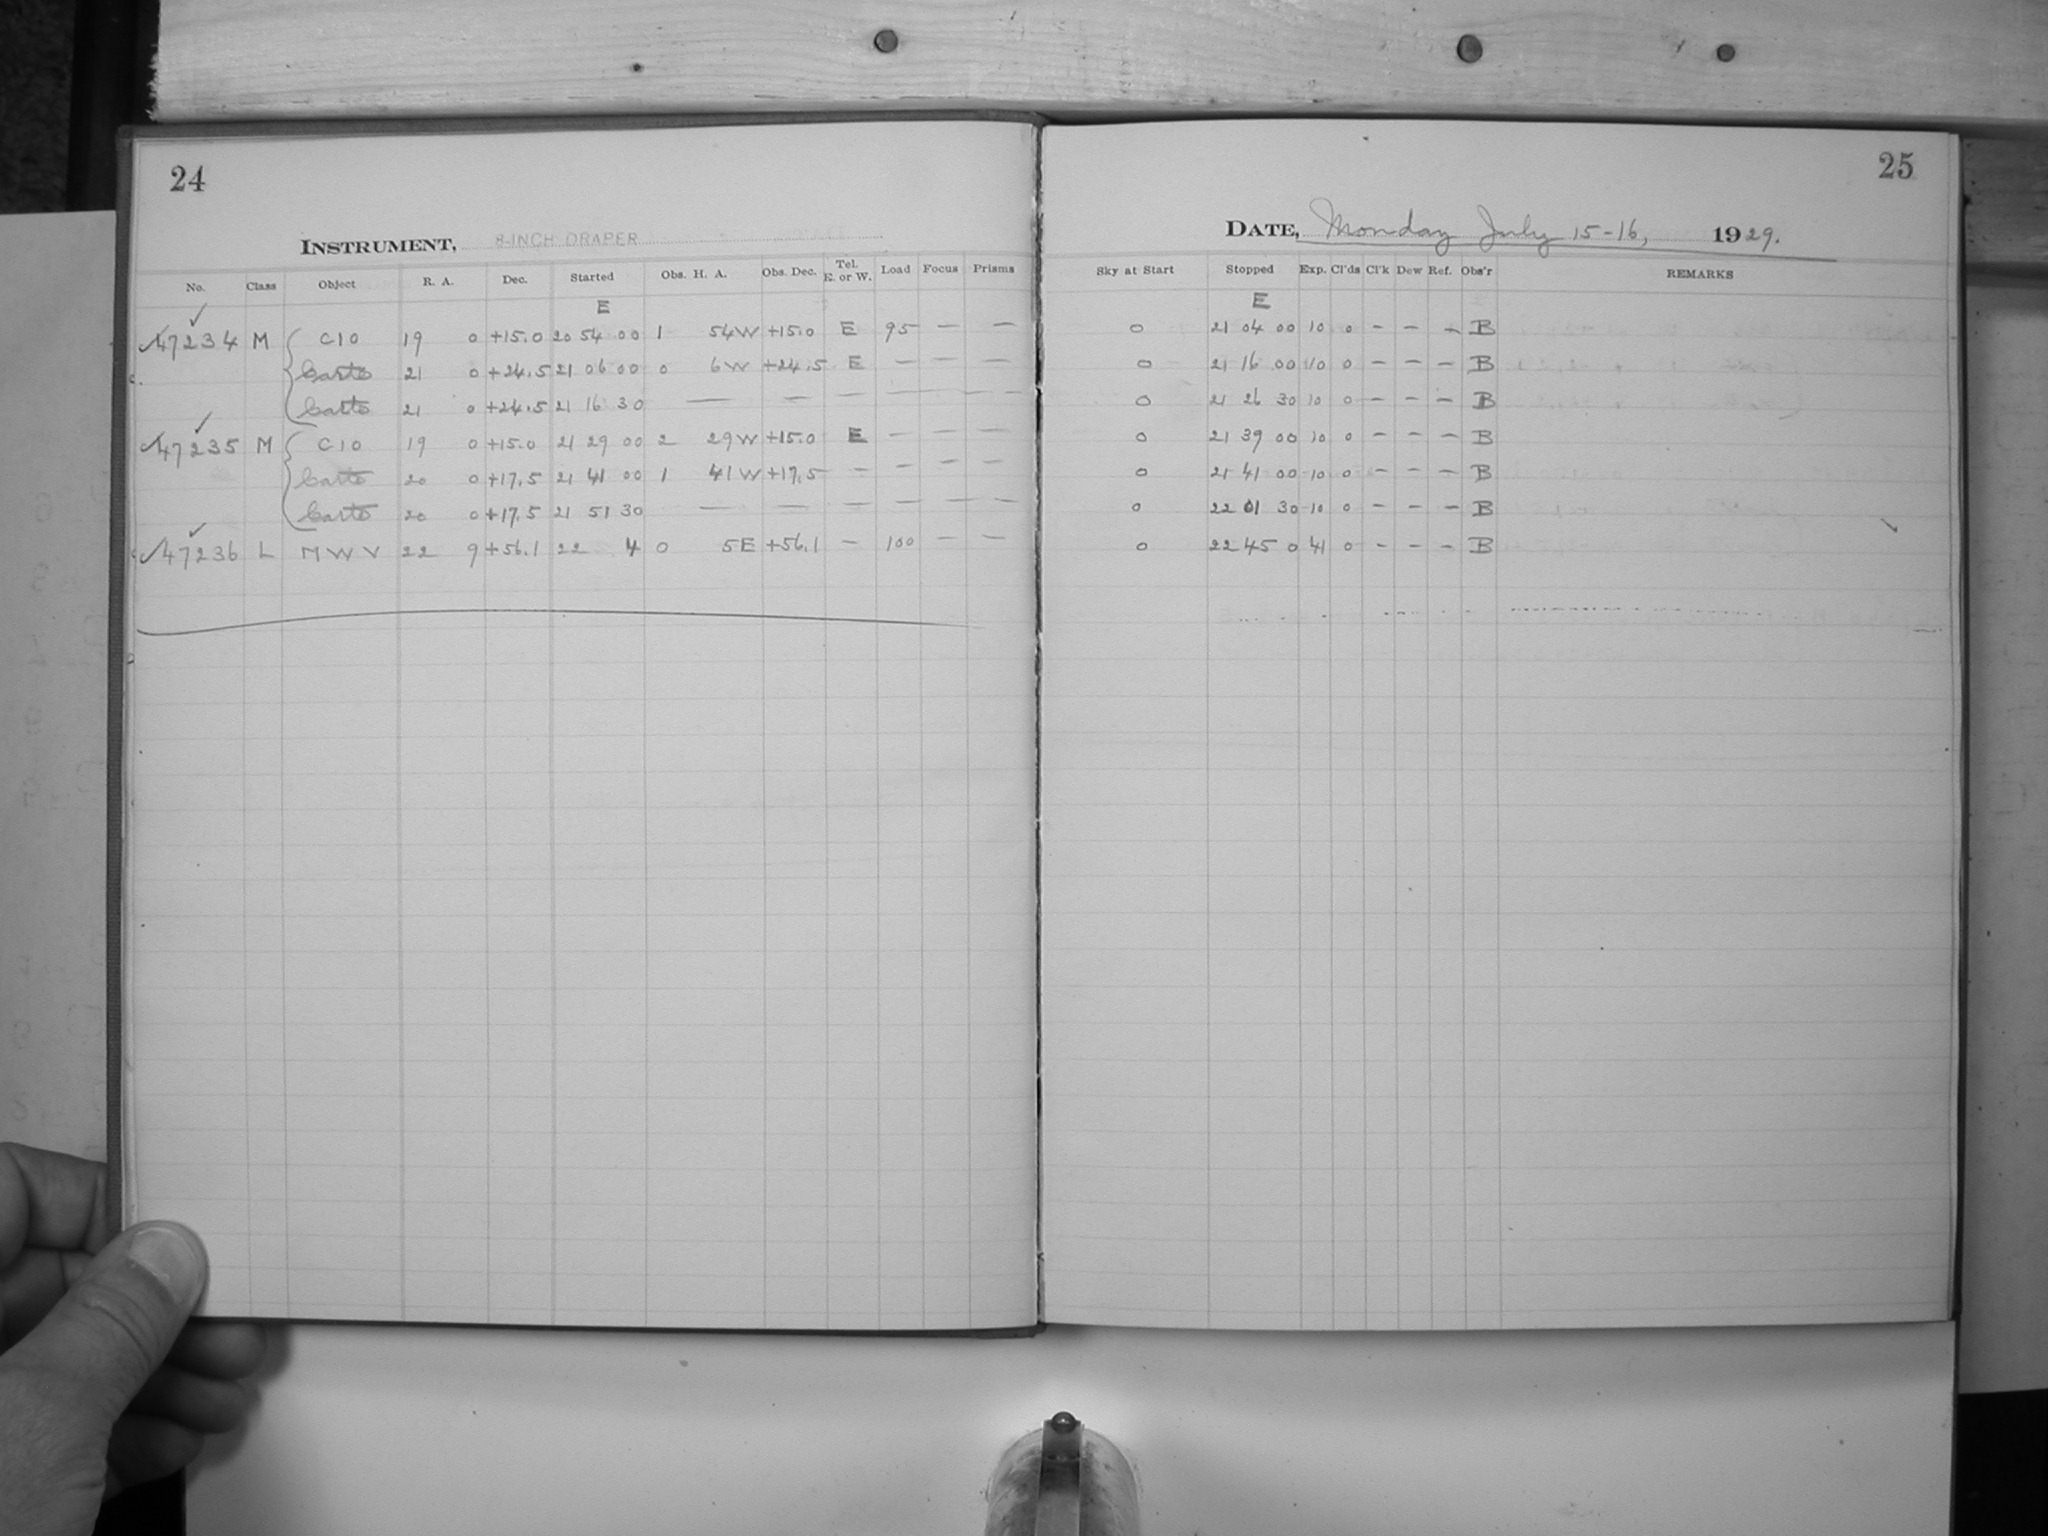 24
INSTRUMENT, 8-INCH DRAPER
No. Class Object R. A. Dec. Started Obs. H. A. Obs. Dec. Tel. E. or W. Load Focus Prisms
E
✓47234 M C10 19 0 +15.0 20 54 00 1 54W +15.0 E 95 — —
21 0 +24.5 21 06 00 0 6W +24.5 E — — —
21 0 +24.5 21 16 30 — — — — — —
✓47235 M C10 19 0 +15.0 21 29 00 2 29W +15.0 E — — —
20 0 +17.5 21 41 00 1 41W +17.5 — — — —
20 0 +17.5 21 51 30 — — — — — —
✓47236 L MWV 22 9 +56.1 22 4 0 5E +56.1 — 100 — —
25
DATE, Monday July 15-16, 1929.
Sky at Start Stopped Exp. Cl'ds Cl'k Dew Ref. Obs'r REMARKS
E
0 21 04 00 10 0 — — — B
0 21 16 00 10 0 — — — B
0 21 26 30 10 0 — — — B
0 21 39 00 10 0 — — — B
0 21 41 00 10 0 — — — B
0 22 01 30 10 0 — — — B
0 22 45 0 41 0 — — — B